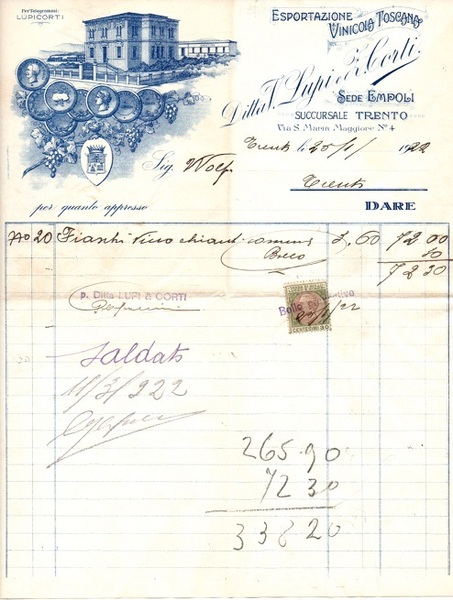 Per Telegrammi:
LUPICORTI
ESPORTAZIONE
VINICOLA TOSCANA
Ditta F. Lupi & Corti
SEDE EMPOLI
SUCCURSALE TRENTO
Via S. Maria Maggiore N.° 4
Trento li 20/1/ 1922
Sig. Wolf
Trento
per quanto appresso
DARE
No 20 Fiaschi vino chianti comune £. 60 72 00
Breo 30
72 30
p. Ditta LUPI & CORTI
Bollo
20/1/22
CENTESIMI 30
Saldato
11/3/922
265.90
72 30
338 20